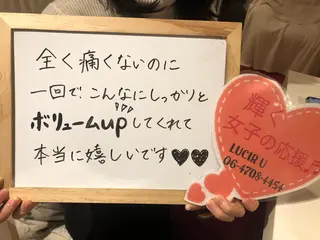 全く痛くないのに
一回で、こんなにしっかりと
ボリュームupしてくれて
本当に嬉しいです♥♥
輝く
女子の応援
LUCIR U
06-4708-4454